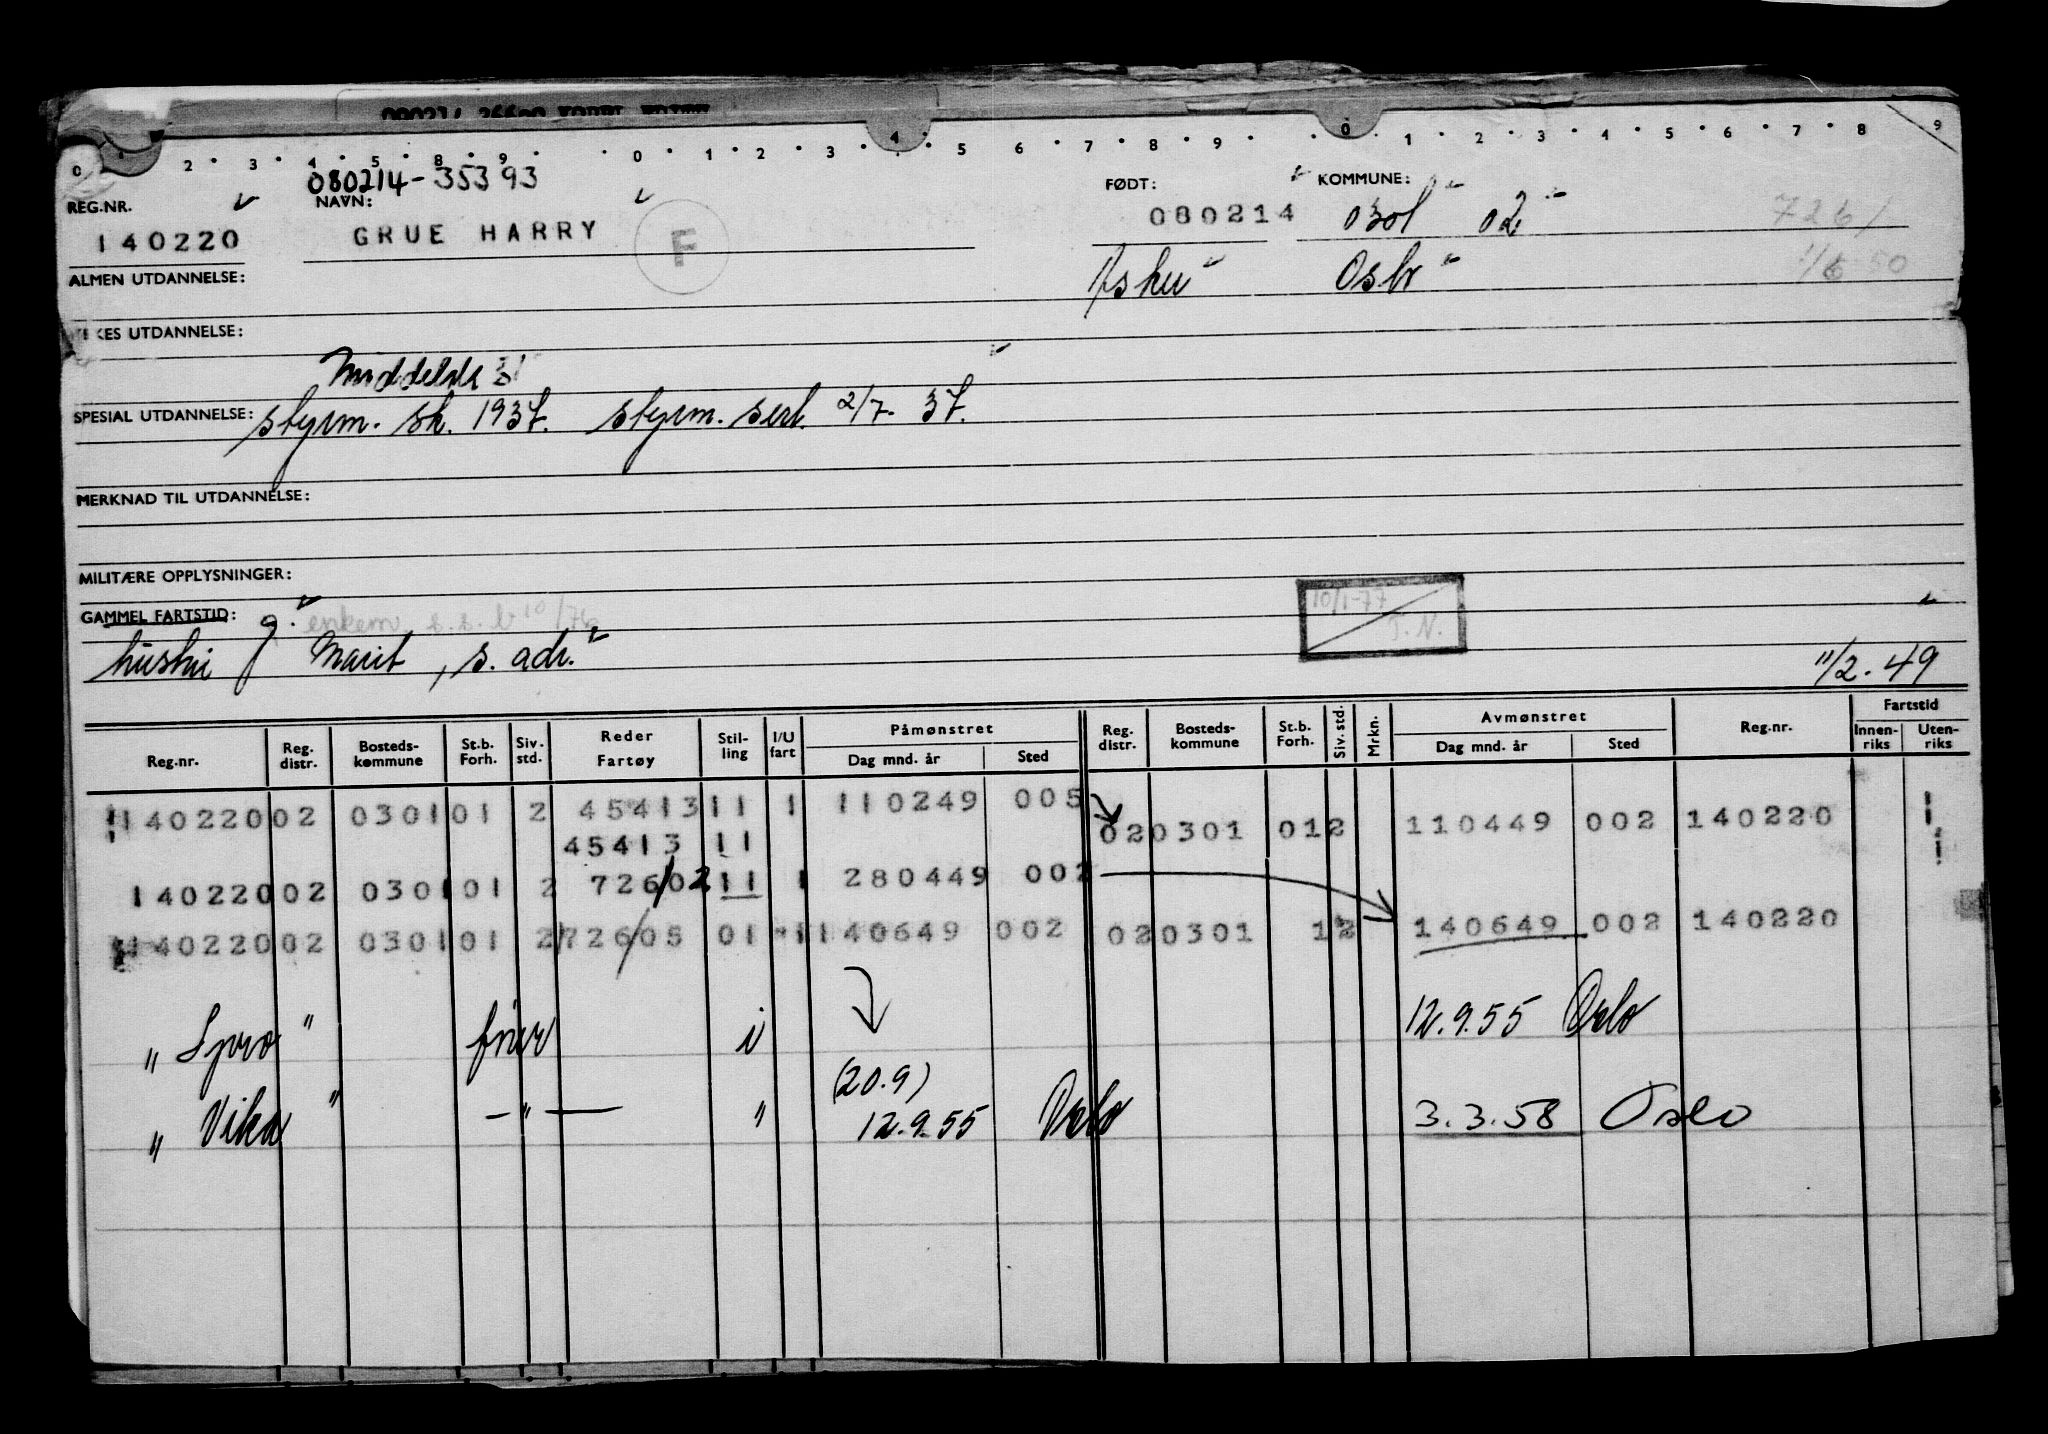 0 2 3 4 5 8 9 0 1 2 3 4 5 6 7 8 9 0 1 2 3 4 5 6 7 8 9
080214-35393
REG.NR. NAVN: FØDT: KOMMUNE:
140220 GRUE HARRY F 080214 0301 02 726/
ALMEN UTDANNELSE: Oslo 1/6 50
KES UTDANNELSE:
Middelsk 31
SPESIAL UTDANNELSE: styrm. sk. 1937. styrm. sert. 2/7. 37.
MERKNAD TIL UTDANNELSE:
MILITÆRE OPPLYSNINGER:
10/1-77
GAMMEL FARTSTID: g. enkem. s.s.b 10/76
T.N.
hustru Marit, s. adr. 11/2.49
Reg.nr. Reg. distr. Bosteds-kommune St.b. Forh. Siv. std. Reder Fartøy Stil-ling I/U fart Påmønstret Dag mnd. år Sted Reg. distr. Bosteds-kommune St.b. Forh. Siv. std. Mrkn. Avmønstret Dag mnd. år Sted Reg.nr. Fartstid Innen-riks Uten-riks
140220 02 0301 01 2 45413 11 1 110249 005 02 0301 01 2 110449 002 140220 1
45413 11 1
140220 02 0301 01 2 726/02 11 1 280449 002
140220 02 0301 01 2 726/05 01 1 140649 002 02 0301 1 2 140649 002 140220
" Spro " i 12.9.55 Oslo
(20.9)
" Vika " - " - " 12.9.55 Oslo 3.3.58 Oslo